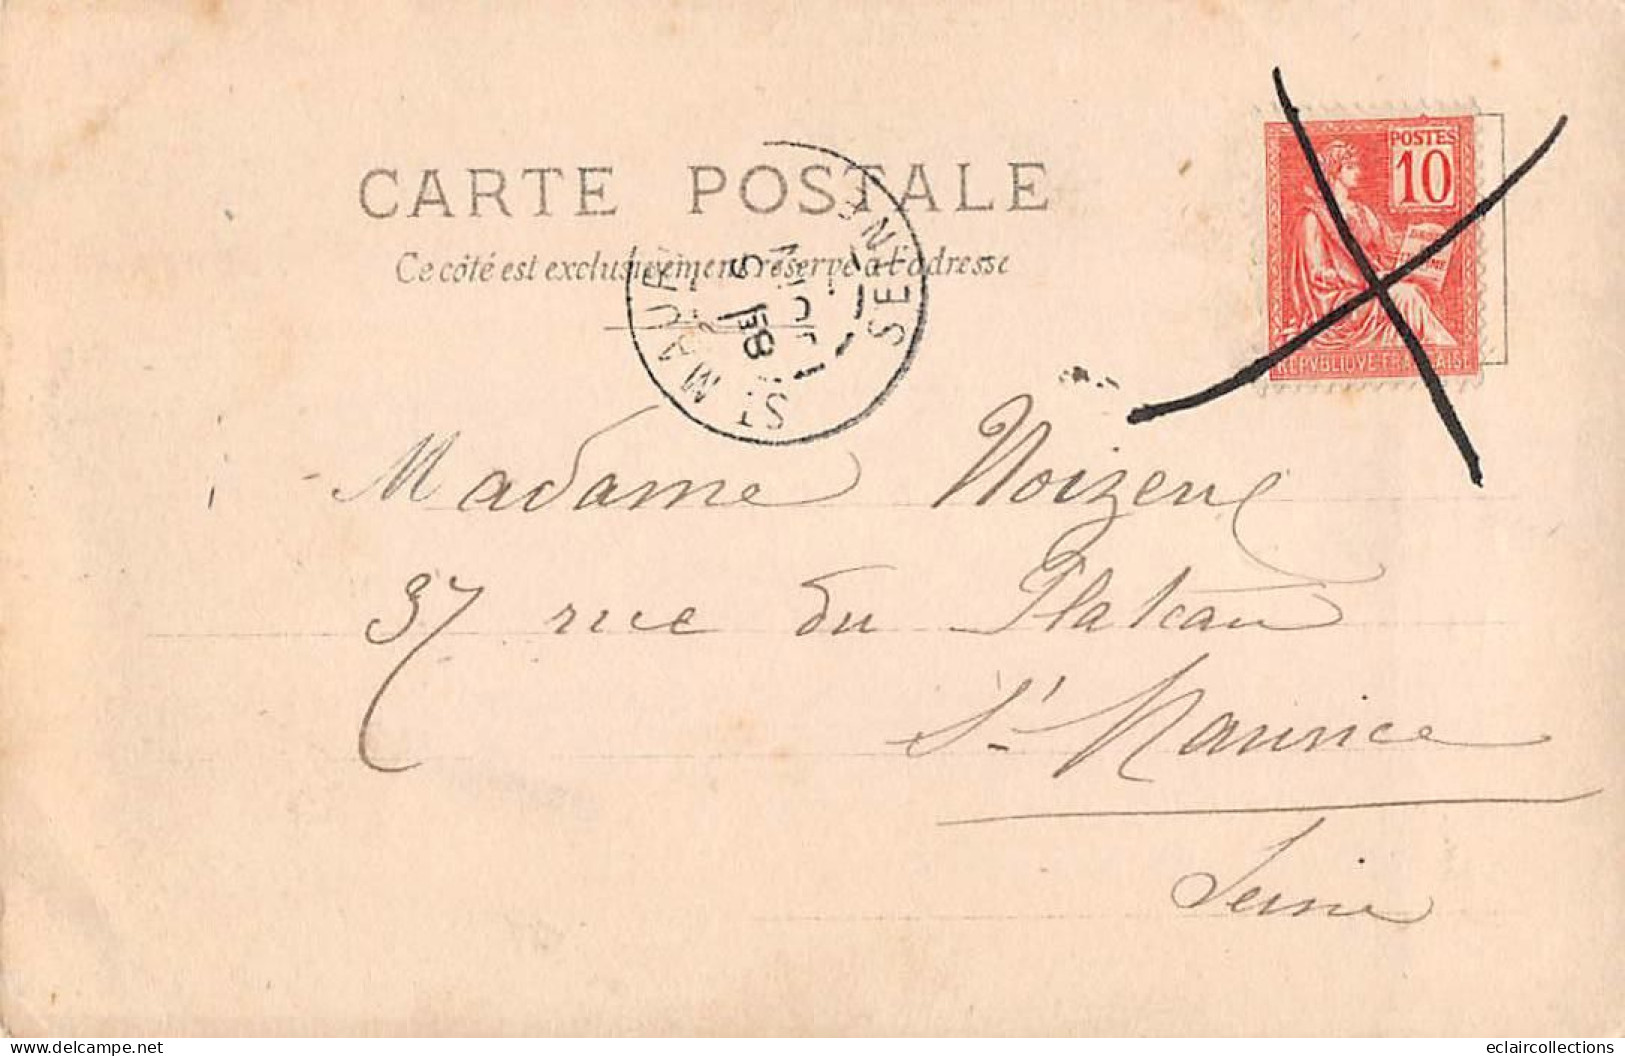 CARTE POSTALE
Ce côté est exclusivement réservé à l'adresse
POSTES
10
REPVBLIQVE FRANCAISE
ST MAUR
SEINE
Madame
37 rue du Plateau
St Maurice
Seine
delcampe.net
eclaircollections